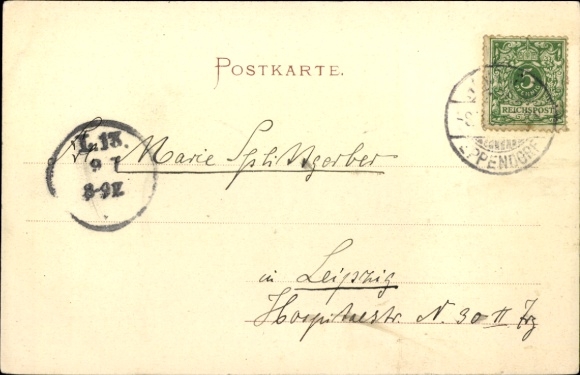 POSTKARTE.
5
REICHSPOST
EPPENDORF
L.13.
9 7
8-9V.
Frl. Marie Splittgerber
in Leipzig
Hospitalstr. N. 30 II